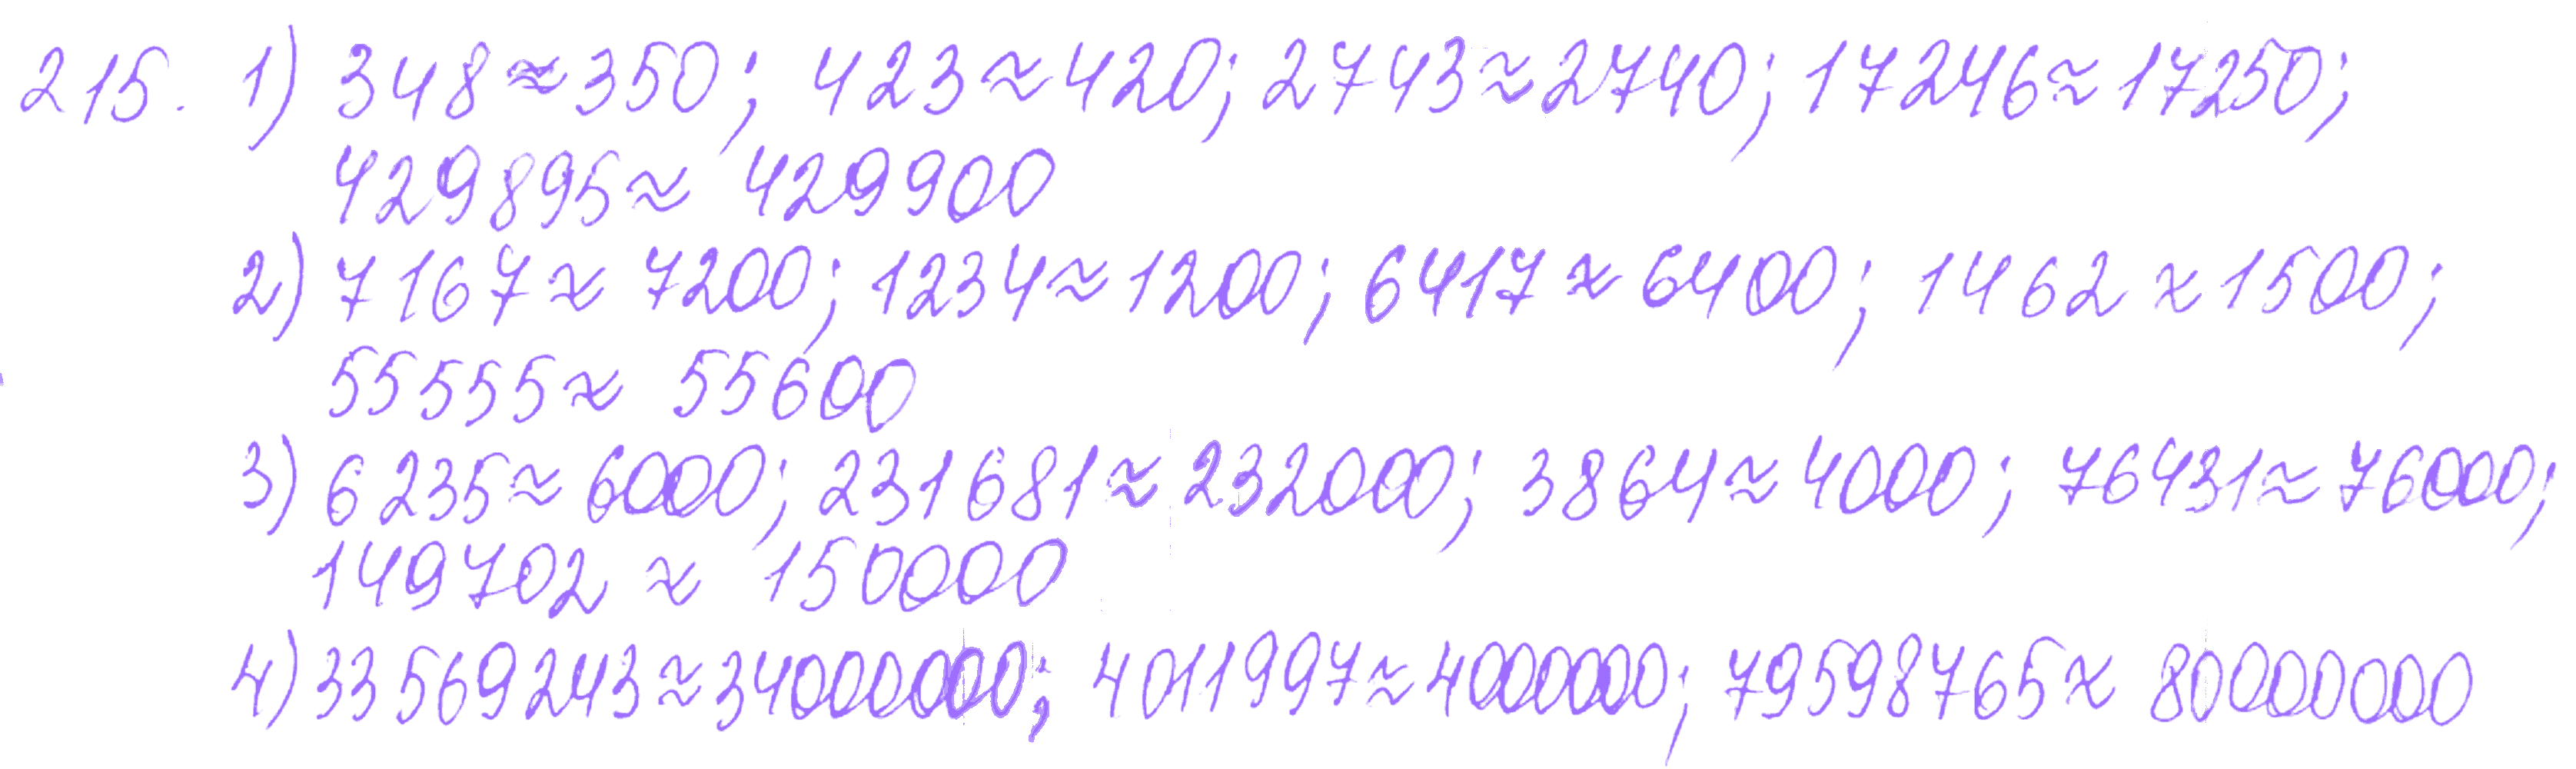 215. 1) 348≈350; 423≈420; 2743≈2740; 17246≈17250;
429895≈ 429900
2) 7167≈ 7200; 1234≈1200; 6417≈6400; 1462≈1500;
55555≈ 55600
3) 6235≈6000; 231681≈232000; 3864≈4000; 76431≈76000;
149702 ≈ 150000
4) 33569243≈34000000; 4011997≈4000000; 79598765≈ 80000000